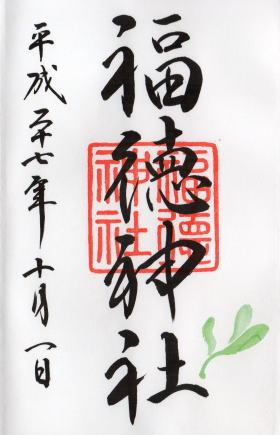 福徳神社
福徳神社
平成二十七年十月一日